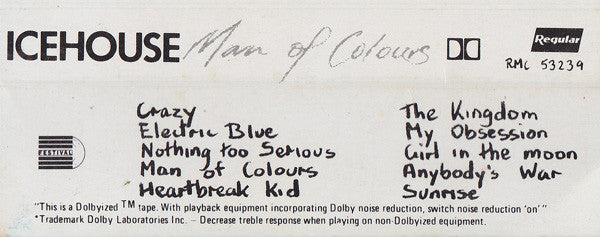 ICEHOUSE Man of Colours Regular
RMC 53239
Crazy
Electric Blue
Nothing too Serious
Man of Colours
Heartbreak Kid
The Kingdom
My Obsession
Girl in the moon
Anybody's War
Sunrise
FESTIVAL
"This is a Dolbyized TM tape. With playback equipment incorporating Dolby noise reduction, switch noise reduction 'on' "
*Trademark Dolby Laboratories Inc. - Decrease treble response when playing on non-Dolbyized equipment.